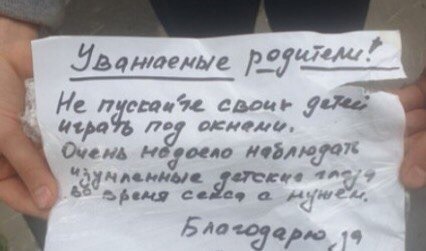 Уважаемые родители!
Не пускайте своих детей
играть под окнами.
Очень надоело наблюдать
изумленные детские глаза
во время секса с мужем.
Благодарю за